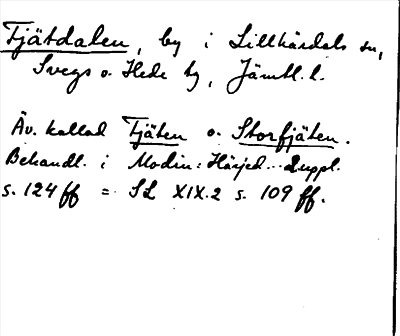 Fjätdalen, by i Lillhärdals sn,
Svegs o. Hede tg, Jämtl. l.
Äv. kallad Fjäten o. Storfjäten.
Behandl. i Modin: Härjed... Suppl.
s. 124 ff = SL XIX.2 s. 109 ff.